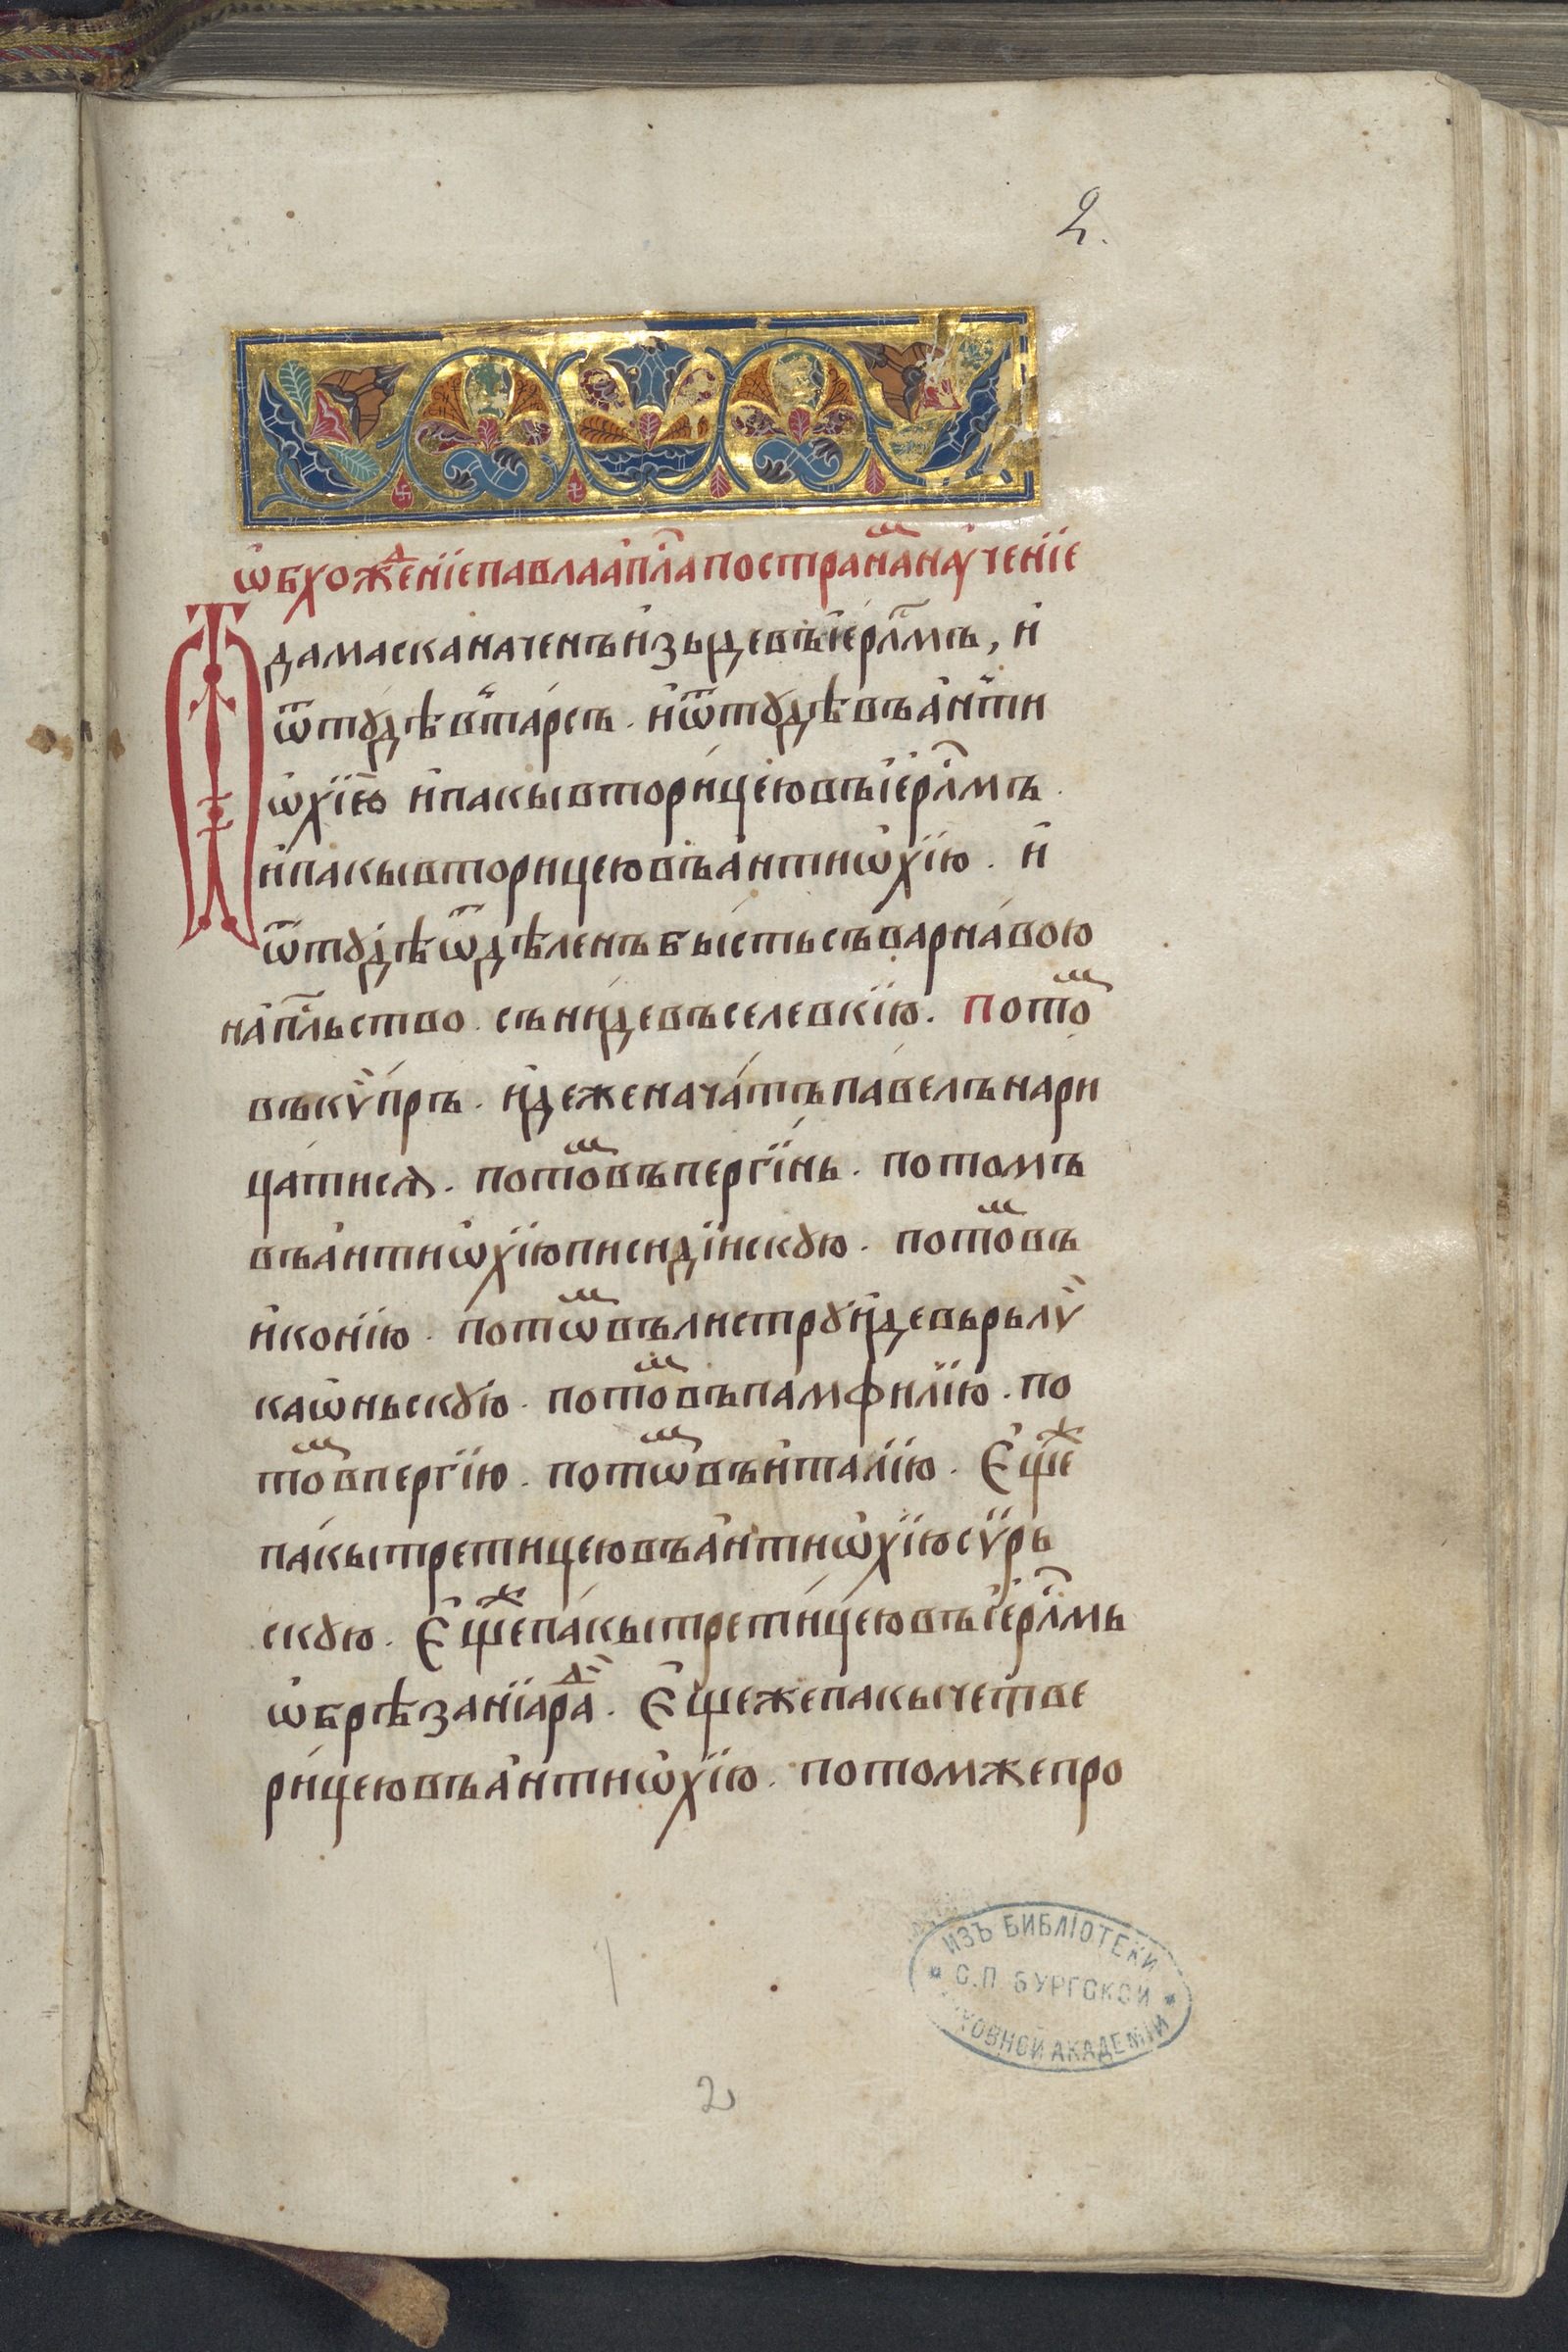 2.
ѡбхоже́нїепавлаап҃лапостранⷨанаꙋченїе
Ѿдамасканаченъизыдевъїерⷭ҇лмъ, и
ѿтꙋдѣ въта́рсъ. иѿтꙋдѣвъанти
ѡхїею ипакывтори́цеювъїерⷭ҇лмъ.
ипакывторицеювъантиѡхїю. и
ѿтꙋдѣѿдѣленъбы́стьсъварна́вою
нап҃льство. съни́девъселевкїю. Потоⷨ
въкѵ́пръ. идеженача́тъпа́велънари
ца́тисѧ. потоⷨвъпергїнь. потомъ
въантиѡхїюписидїискꙋю. потоⷨвъ
иконїю. потѡⷨвълистрꙋидевьрьлѵ
каѡньскꙋю. потоⷨвъпамфилїю. по
тоⷨвпергїю. потѡⷨвъиталїю. Єщеⷤ
па́кытретицеювъантиѡхїюсѵрь
скꙋю. Єщеⷤпа́кытрети́цеювъїерⷭ҇лмь
ѡбрѣзанїараⷣ. Єщежепакычетве
ри́цеювъантиѡхїю. потомжепро
ИЗЪ БИБЛІОТЕКИ
С.П. БУРГСКОЙ
ХОВНОЙ АКАДЕМІИ
2